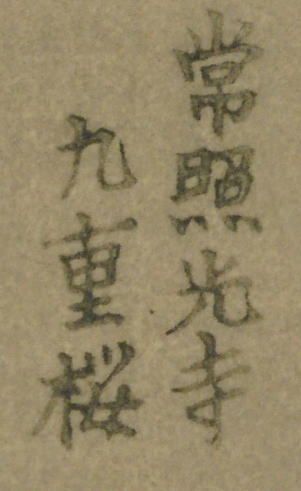 常照光寺
九重桜